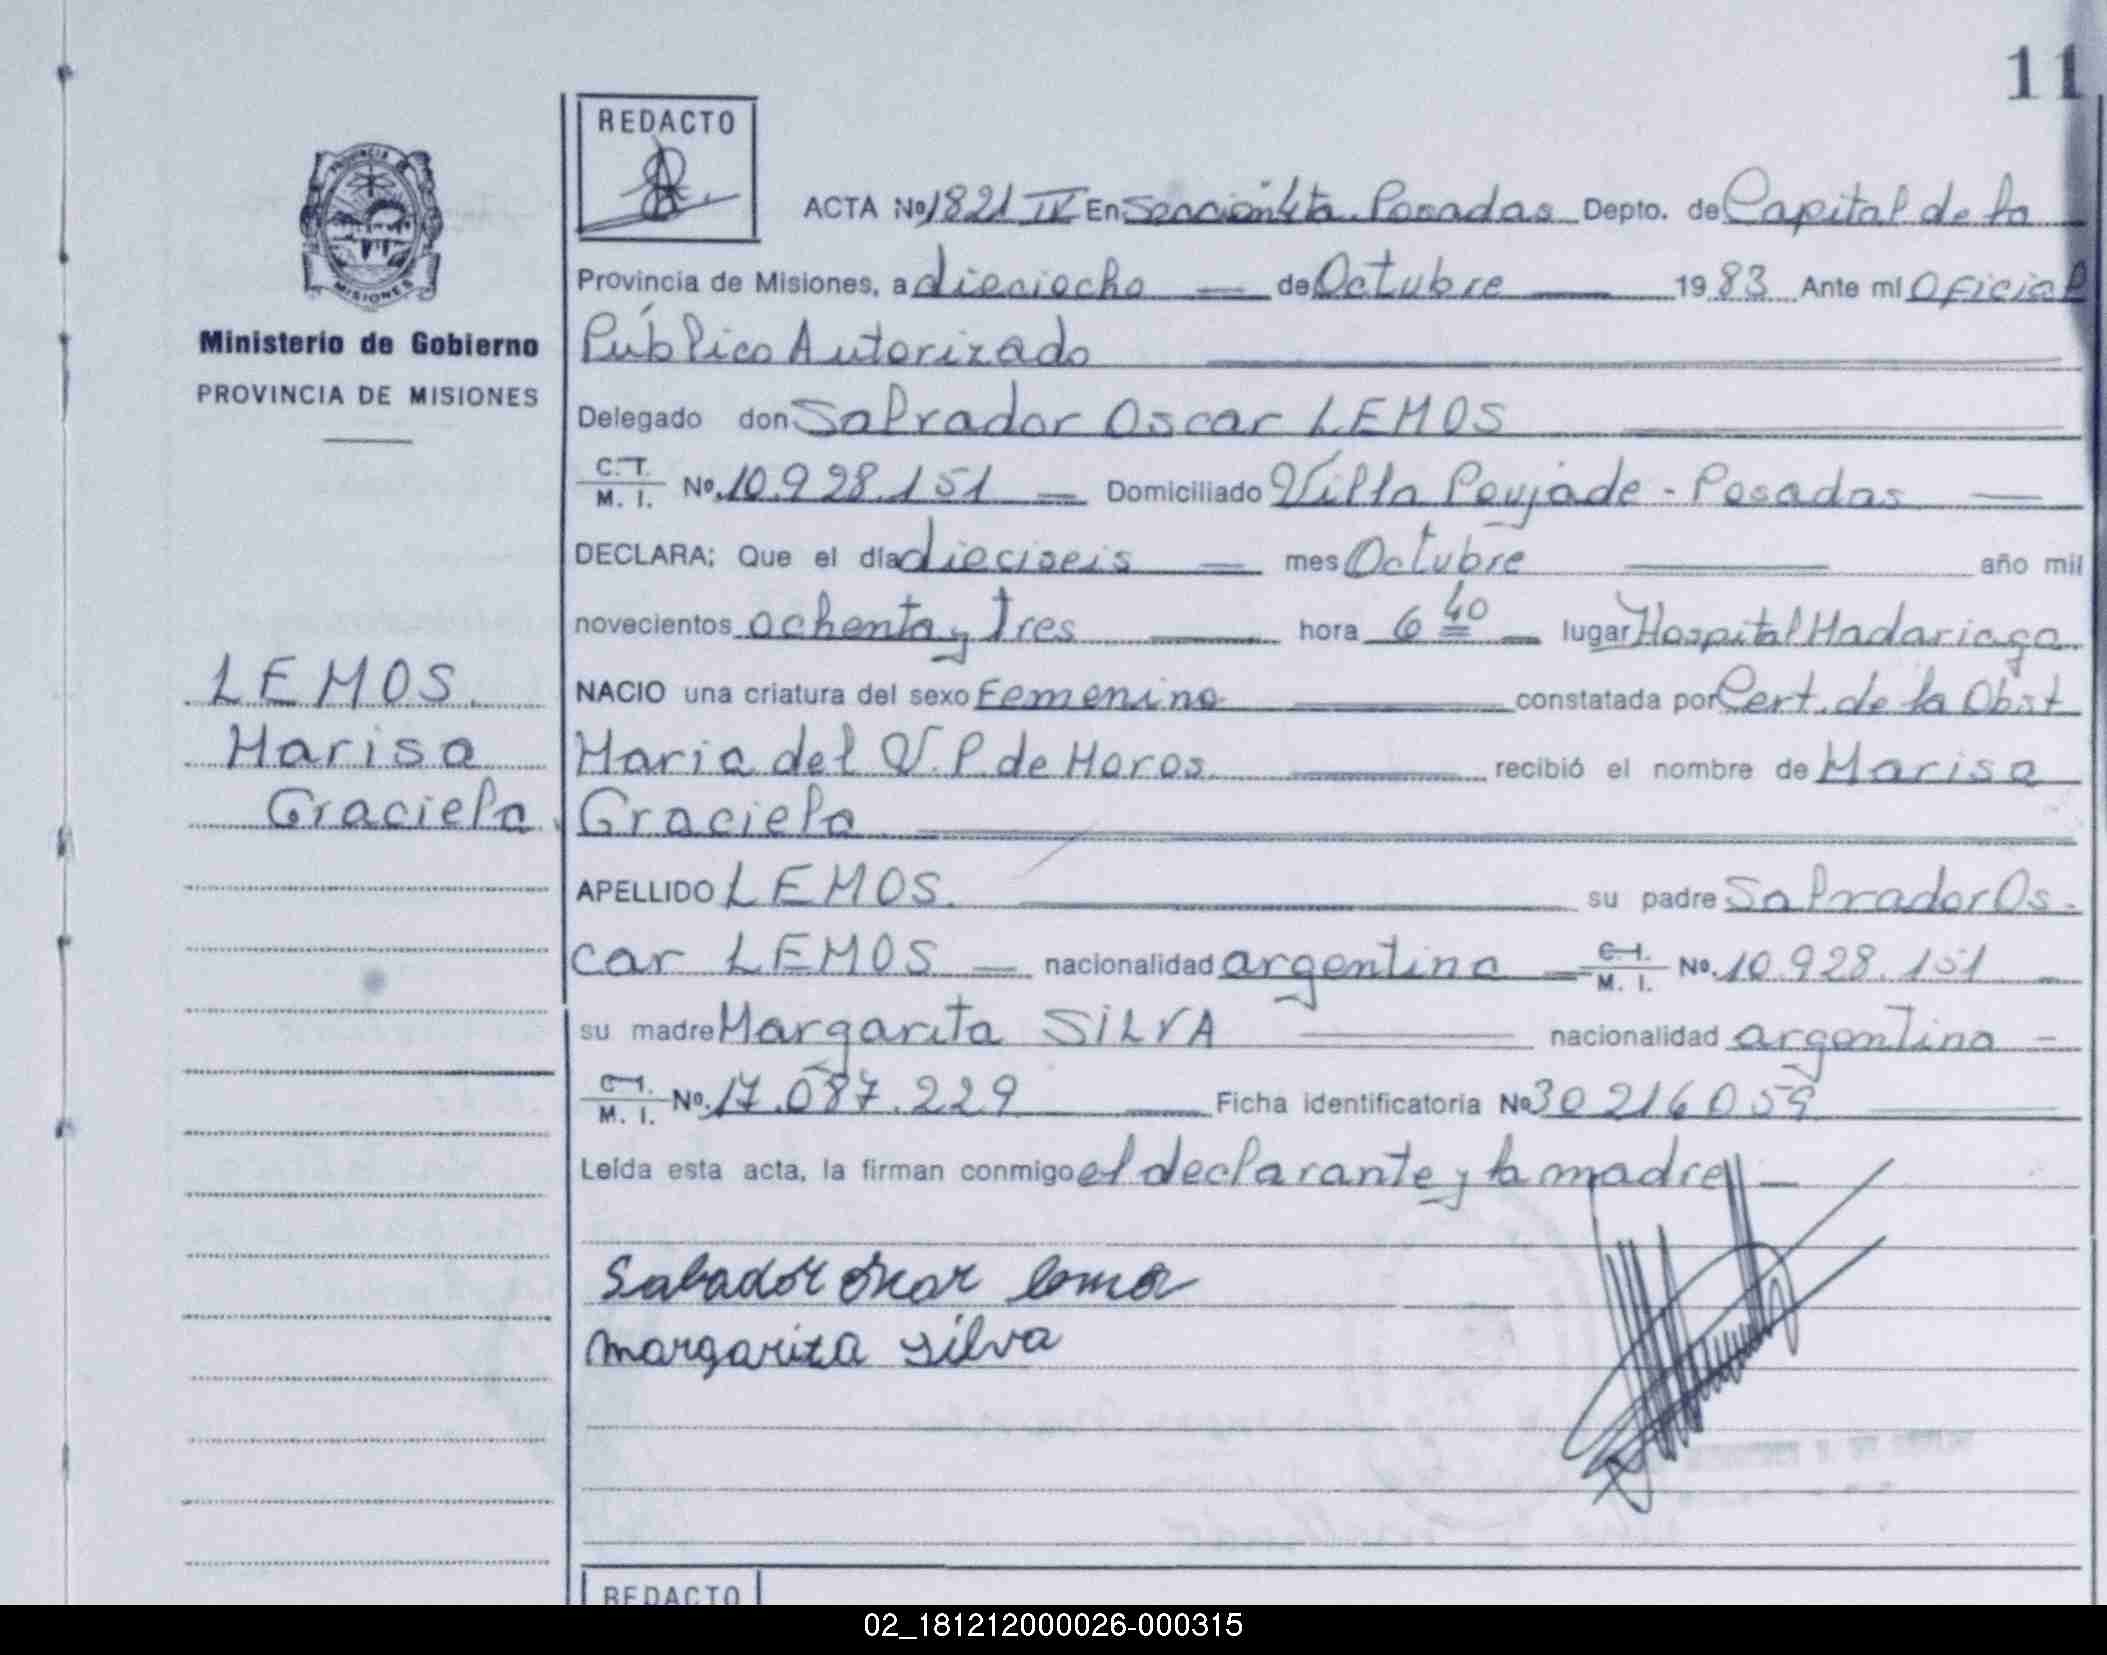 11
REDACTO
PROVINCIA DE
MISIONES
Ministerio de Gobierno
PROVINCIA DE MISIONES
LEMOS.
Marisa
Graciela.
ACTA Nº 1821 IV En Sección 4ta. Posadas Depto. de Capital de la
Provincia de Misiones, a dieciocho de Octubre 1983 Ante mí Oficial
Público Autorizado
Delegado don Salvador Oscar LEMOS
C. I. M. I. Nº. 10.928.151 Domiciliado Villa Poujade - Posadas
DECLARA; Que el día dieciseis mes Octubre año mil
novecientos ochenta y tres hora 6 40 lugar Hospital Madariaga
NACIO una criatura del sexo Femenino constatada por Cert. de la Obst
Maria del V. P. de Moros recibió el nombre de Marisa
Graciela
APELLIDO LEMOS. su padre Salvador Os-
car LEMOS nacionalidad argentina C. I. M. I. Nº. 10.928.151
su madre Margarita SILVA nacionalidad argentina
C. I. M. I. Nº. 17.087.229 Ficha identificatoria Nº 30216059
Leída esta acta, la firman conmigo el declarante y la madre
Salbador oscar lemos
margarita silva
REDACTO
02_181212000026-000315